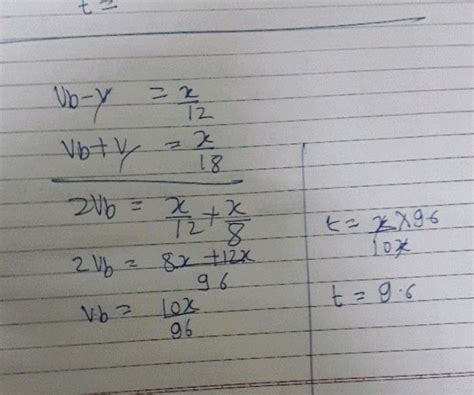 t =
Vb-y = x/12
Vb+y = x/18
2Vb = x/12 + x/8
2Vb = 8x+12x/96
Vb = 10x/96
t = x×96/10x
t = 9.6